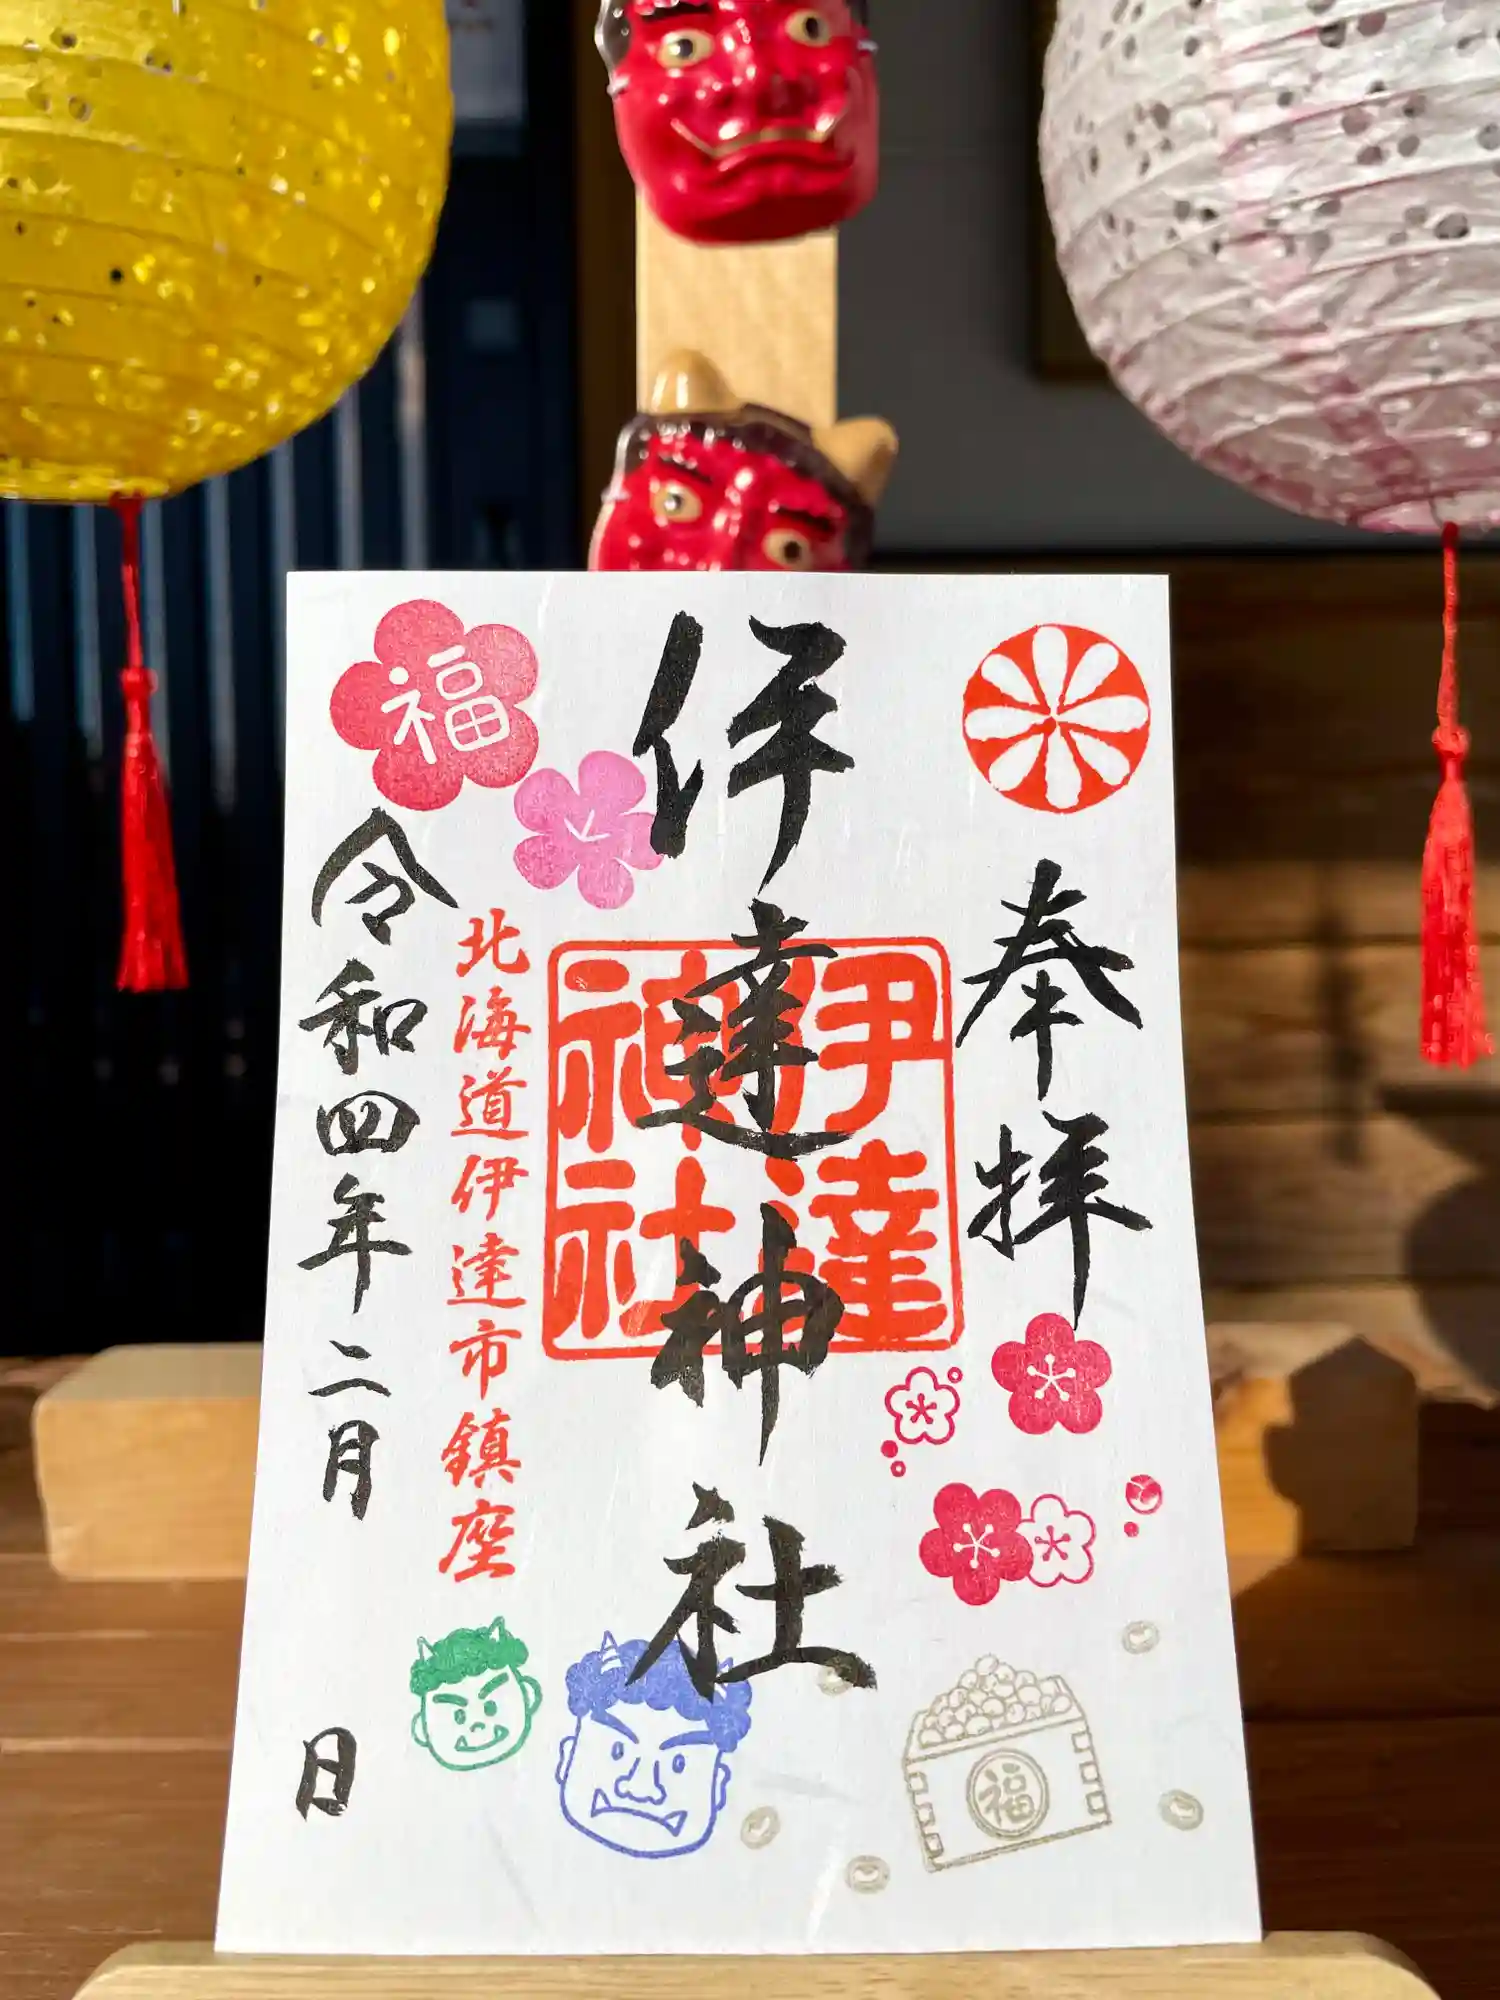 奉拝
伊達神社
伊達
神社
福
北海道伊達市鎮座
令和四年二月　日
福